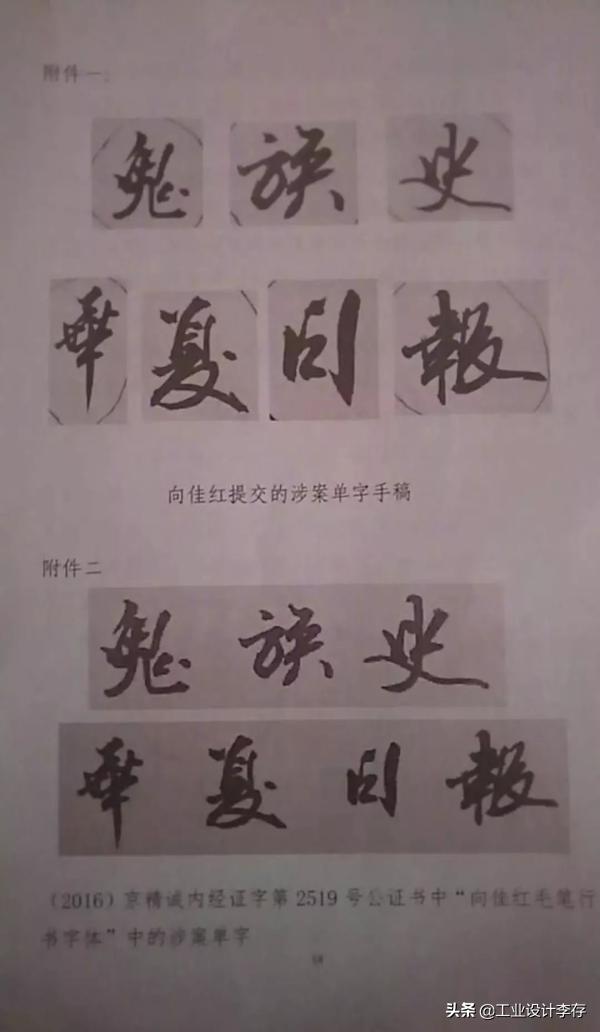 附件一：
鬼族史
華夏日報
向佳红提交的涉案单字手稿
附件二
鬼族史
華夏日報
（2016）京精诚内经证字第2519号公证书中“向佳红毛笔行
书字体”中的涉案单字
头条 @工业设计李存